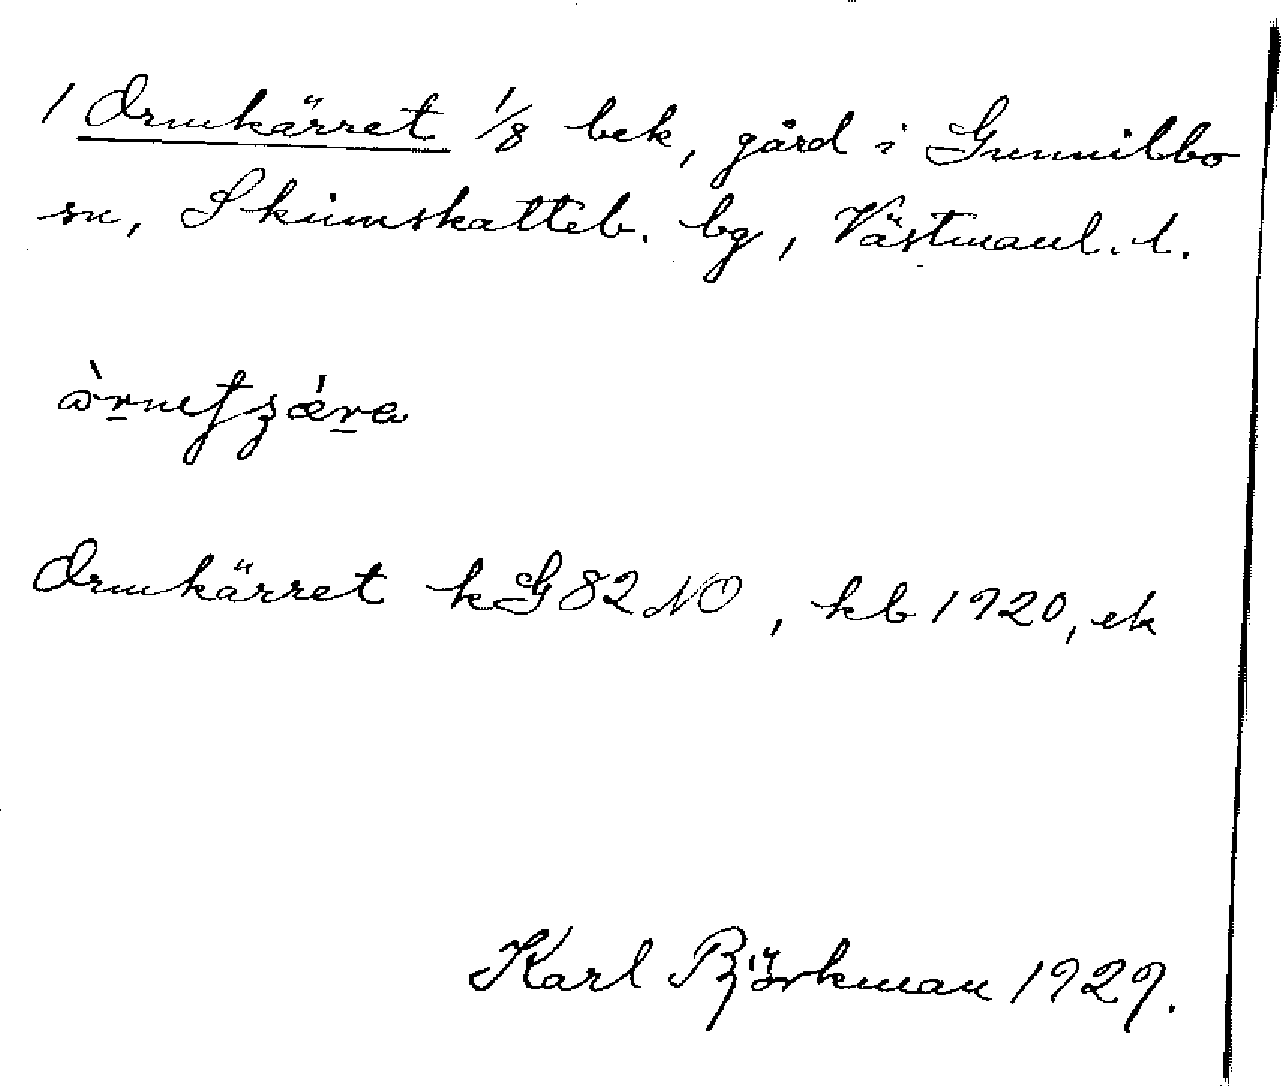 1 Ormkärret 1/8 bek, gård i Gunnilbo
sn, Skinnskatteb. bg, Västmanl. l.
Ormkärret kG 82 NO, kb 1920, ek
Karl Björkman 1929.